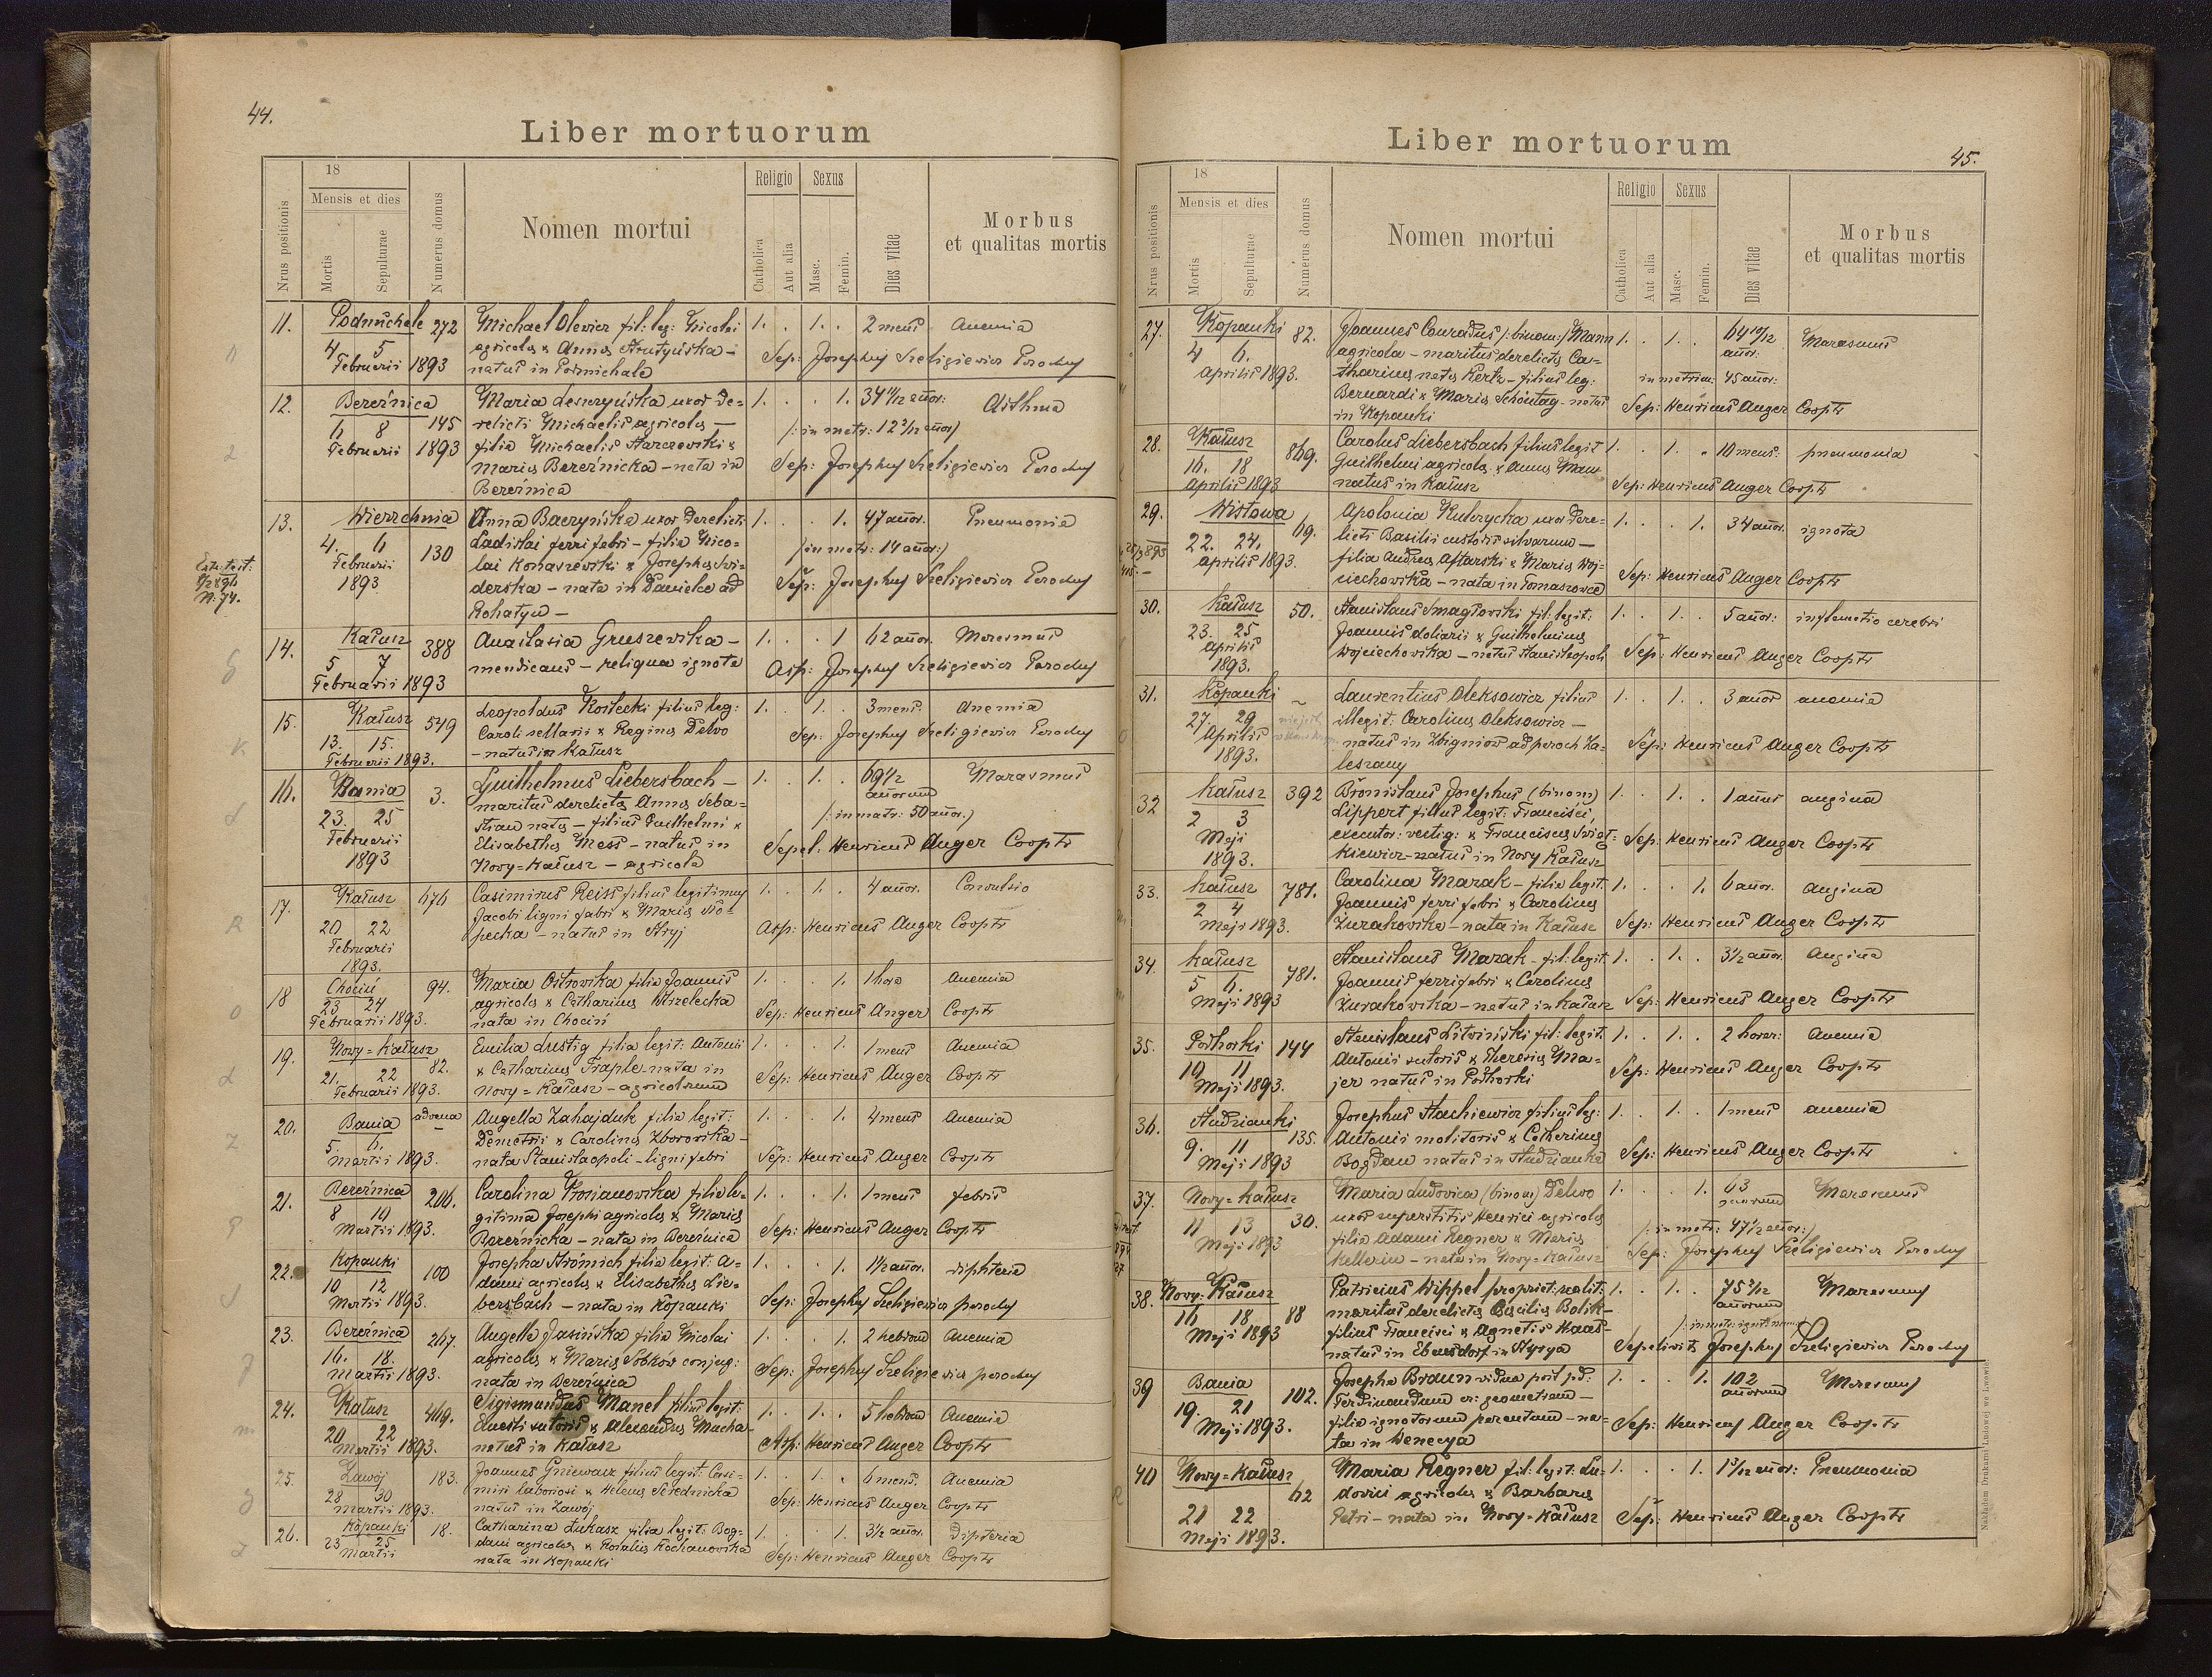 44.
Liber mortuorum
Nrus positionis
18
Mensis et dies
Mortis
Sepulturae
Numerus domus
Nomen mortui
Religio
Catholica
Aut alia
Sexus
Masc.
Femin.
Dies vitae
Morbus
et qualitas mortis
11. Podmichale 272 Michael Olewicz fil: leg: Nicolai 1. . 1. . 2 mens Anemia
4 5 agricolae & Annae
Februarii 1893 natus in Podmichale Sep: Josephus Szeligiewicz Parochus
12. Bereźnica Maria uxor de= 1. . . 1. 34 11/12 anor: Asthma
6 8 145 relicti Michaelis agricolae — /: in matr: 12 3/12 anor)
Februarii 1893 filia Michaelis &
Maria Bereźnicka – nata in Sep: Josephus Szeligiewicz Parochus
Bereźnica
13. Wierzchnia Anna Baczyńska uxor derelicti 1. . . 1. 47 anor. Pneumonia
4. 6 130 Ladislai ferri fabri – filia Nico= /in matr: 14 anor:/
Februarii lai Konaszewski & Josepha Swi=
1893 derska – nata in ad Sep: Josephus Szeligiewicz Parochus
Rohatyn —
N: 74.
14. Kałusz 388 Anastasia Gruszewska – 1. . . 1 62 anor. Marasmus
5 7 mendicans – reliqua ignota Asp: Josephus Szeligiewicz Parochus
Februarii 1893
15. Kałusz 549 Leopoldus Kosłecki filius leg: 1. . 1. . 3 mens. Anemia
13. 15. Caroli sellarii & Regina Delwo Sep: Josephus Szeligiewicz Parochus
Februarii 1893. – natus in Kałusz
16. Bania 3. Guilhelmus Liebersbach – 1. . 1. . 69 1/2 Marasmus
23. 25 maritus derelictae Annae Seba= anorum
Februarii stian natae – filius Guilhelmi & /: in matr: 50 anor.)
1893 Elisabetha Mess – natus in Sepel: Henricus Anger Cooptr
Nowy-Kałusz – agricola
17. Kałusz 676 Casimirus Reiss filius legitimus 1. . 1. . 4 anor. Convulsio
20 22 Jacobi ligni fabri & Maria So=
Februarii pecka – natus in Stryj Asp: Henricus Anger Cooptr
1893.
18 Chociń 94. Maria Ostrowska filia Joannis 1. . . 1. 1 hora Anemia
23 24 agricolae & Catharina Strzelecka
Februarii 1893. nata in Chociń Sep: Henricus Anger Cooptr
19. Nowy=Kałusz 82. Emilia Lustig filia legit: Antonii 1. . . 1. 1 mens Anemia
21. 22 & Catharina Traple nata in
Februarii 1893. Nowy=Kałusz – agricolarum Sep: Henricus Anger Cooptr
20. Bania advena Angella Zahajduk filia legit: 1. . . 1. 4 mens Anemia
5. 6. Demetrii & Carolina Zborowska –
martii 1893. nata Stanislaopoli – ligni fabri Sep: Henricus Anger Cooptr
21. Bereźnica 206. Carolina filia le= 1. . . 1. 1 mens febris
8 10 gitima Josephi agricolae & Maria
Martii 1893. Bereźnicka – nata in Bereźnica Sep: Henricus Anger Cooptr
22. Kopanki 100 Josepha Strömich filia legit: A= 1. . . 1. 1 1/2 anor. diphteria
10 12 dami agricolae & Elisabetha Lie=
Martii 1893. bersbach – nata in Kopanki Sep: Josephus Szeligiewicz parochus
23. Bereźnica 267. Angella Jasińska filia Nicolai 1. . . 1. 2 hebdom Anemia
16. 18. agricolae & Maria Sobków conjug:
martii 1893. nata in Bereźnica Sep: Josephus Szeligiewicz parochus
24. Kałusz 469. Sigismundus Manel filius legit: 1. . 1. . 5 hebdom Anemia
20 22 sutoris & Alexandra Mucha
martii 1893. natus in Kałusz Asp: Henricus Anger Cooptr
25. Zawój 183. Joannes Gniewosz filius legit: Casi= 1. . 1. . 6 mens. Anemia
28 30 miri laboriosi & Helena Serednicka
martii 1893. natus in Zawój Sep: Henricus Anger Cooptr
26. Kopanki 18. Catharina Łukasz filia legit: Bog= 1. . . 1. 3 1/2 anor. Dipteria
23 25 dani agricolae & Rosalia Kochanowska
Martii nata in Kopanki Sep: Henricus Anger Cooptr
Liber mortuorum
45.
Nrus positionis
18
Mensis et dies
Mortis
Sepulturae
Numerus domus
Nomen mortui
Religio
Catholica
Aut alia
Sexus
Masc.
Femin.
Dies vitae
Morbus
et qualitas mortis
27. Kopanki 82. Joannes Conradus /:binom:/ Mann 1. . 1. . 64 10/12 Marasmus
4 6. agricola – maritus derelictae Ca= anor:
Aprilis 1893. tharina nata Kertz – filius leg: in matrim: 45 anor:
Bernardi & Maria Schöntag – natus Sep: Henricus Anger Cooptr
in Kopanki
28. Kałusz 869. Carolus Liebersbach filius legit 1. . 1. . 10 mens: pneumonia
16. 18 Guilhelmi agricolae & Anna Mann
Aprilis 1893 natus in Kałusz Sep: Henricus Anger Cooptr
29. Wistowa 69. Apolonia Kulczycka uxor dere= 1. . . 1. 34 anor. ignota
22. 24. licti Basilii custodis silvarum —
Aprilis 1893. filia Andreae Aftarski & Maria Woj=
ciechowska – nata in Tomaszowce Sep: Henricus Anger Cooptr
30. Kałusz 50. Stanislaus Smagłowski fil: legit: 1. . 1. . 5 anor: inflamatio cerebri
23. 25 Joannis doliarii & Guilhelmina
Aprilis Wojciechowska – natus Stanislaopoli Sep: Henricus Anger Cooptr
1893.
31. Kopanki Laurentius Oleksowicz filius 1. . 1. . 3 anor anemia
27. 29 illegit: Carolina Oleksowicz —
Aprilis natus in Zbigniow ad paroch Za= Sep: Henricus Anger Cooptr
1893. leszany
32 Kałusz 392 Bronislaus Josephus (binom) 1. . 1. . 1 annus angina
2 3 Lippert filius legit: Francisci,
Maji executor: vectig: & Francisca Świąt= Sep: Henricus Anger Cooptr
1893. kiewicz – natus in Nowy Kałusz
33. Kałusz 781. Carolina Marak – filia legit. 1. . . 1. 6 anor. angina
2 4 Joannis ferri fabri & Carolina
Maji 1893. Żurakowska – nata in Kałusz Sep: Henricus Anger Cooptr
34. Kałusz 781. Stanislaus Marak – fil. legit. 1. . 1. . 3 1/2 anor. Angina
5 6. Joannis ferri fabri & Carolina
Maji 1893 Żurakowska – natus in Kałusz Sep: Henricus Anger Cooptr
35. Podhorki 144 Stanislaus Litwiński fil: legit: 1. . 1. . 2 horar: Anemia
10 11 Antonii sutoris & Theresia Ma=
Maji 1893. jer natus in Podhorki Sep: Henricus Anger Cooptr
36. Studzianki 135. Josephus Stachiewicz filius leg: 1. . 1. . 1 mens anemia
9. 11 Antonii molitoris & Catharina
Maji 1893 Bogdan natus in Studzianka Sep: Henricus Anger Cooptr
37. Nowy=Kałusz 30. Maria Ludovica (binom) Delwo 1. . . 1. 63 Marasmus
11 13 uxor superstitis Henrici agricolae anorum
Maji 1893 filia Adami Regner & Maria /: in matr: 47 1/2 anor:/
Kellerin – nata in Nowy-Kałusz Sep: Josephus Szeligiewicz Parochus
38. Nowy-Kałusz 88 Patricius Wippel propriet: realit: 1. . 1. . 75 2/12 Marasmus
16 18 maritus derelictae Caecilia Bolik – anorum
Maji 1893 filius Francisci & Agnetis Kaas –
natus in Ebersdorf in Styrya Sepelivit Josephus Szeligiewicz Parochus
39 Bania 102. Josepha Braun vidua post p.d: 1. . . 1. 102 Marasmus
19. 21 Ferdinandum geometram — anorum
Maji 1893. filia ignotorum parentum – na= Sep: Henricus Anger Cooptr
ta in Wenecya
40 Nowy=Kałusz 62 Maria Regner fil: legit: Lu= 1. . . 1. 1 3/12 anor: Pneumonia
21 22 dovici agricolae & Barbara
Maji 1893. Petri – nata in Nowy-Kałusz Sep: Henricus Anger Cooptr
Nakładem Drukarni Ludowej we Lwowie